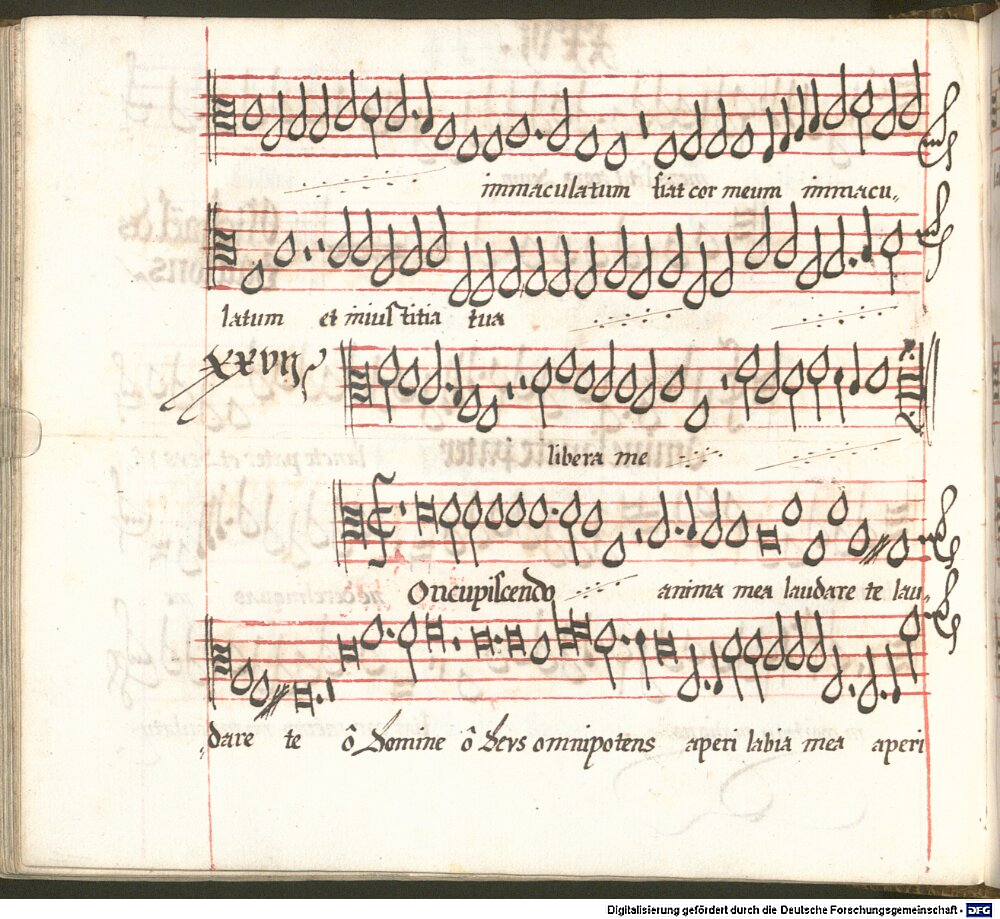 immaculatum fiat cor meum immacu„
latum et in iustitia tua
XXVII
libera me
Oncupiscendo anima mea laudare te lau„
„dare te ô Domine ô Devs omnipotens aperi labia mea aperi
Digitalisierung gefördert durch die Deutsche Forschungsgemeinschaft - DFG